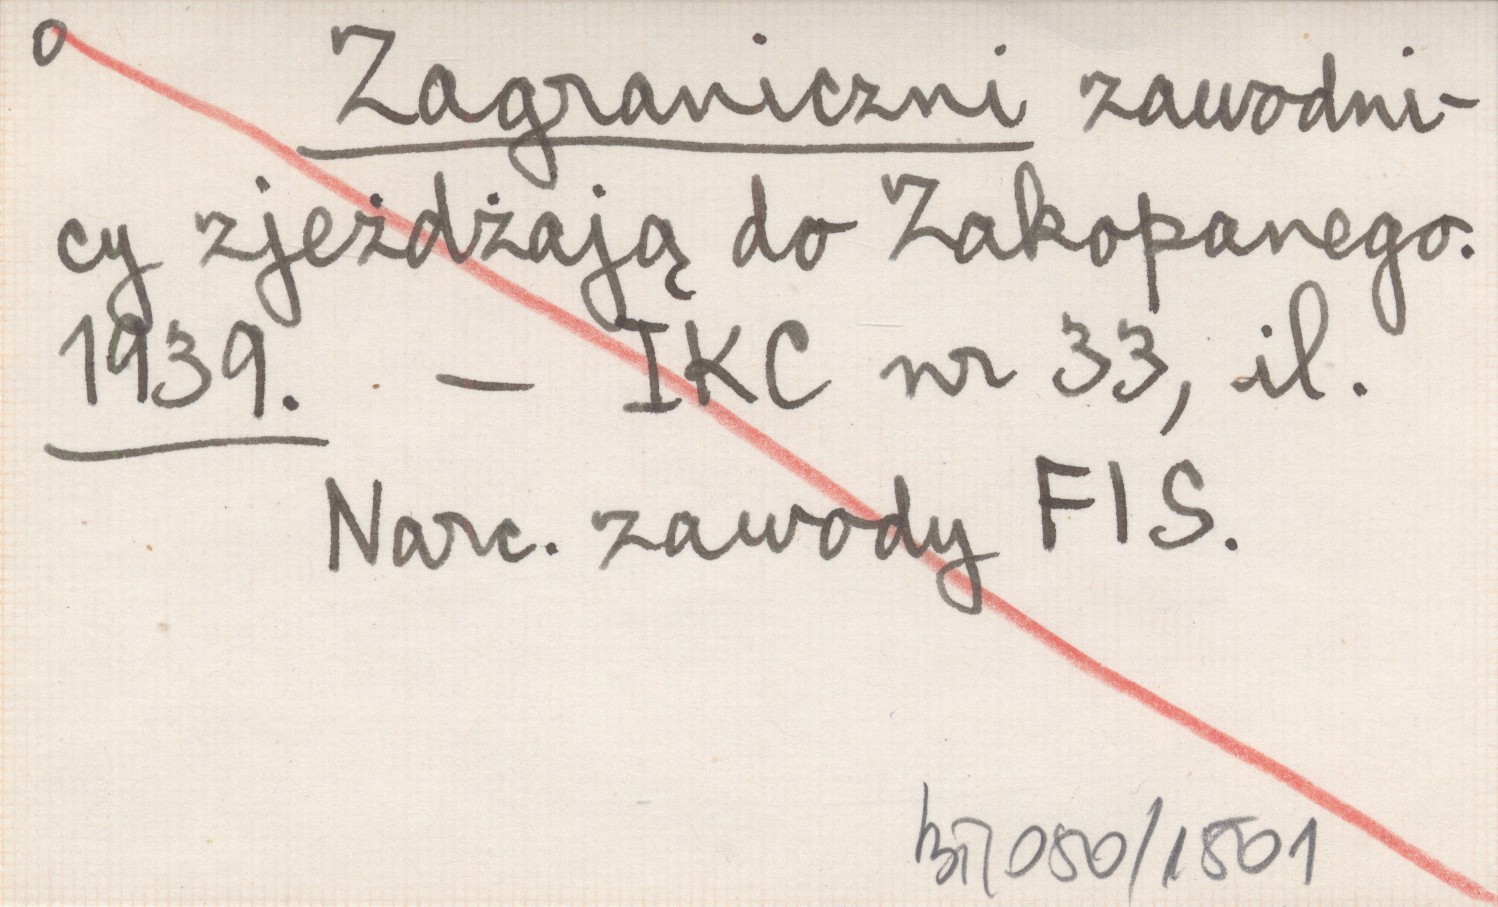 o Zagraniczni zawodni-
cy zjeżdżają do Zakopanego.
1939. — IKC nr 33, il.
Narc. zawody FIS.
050/1501